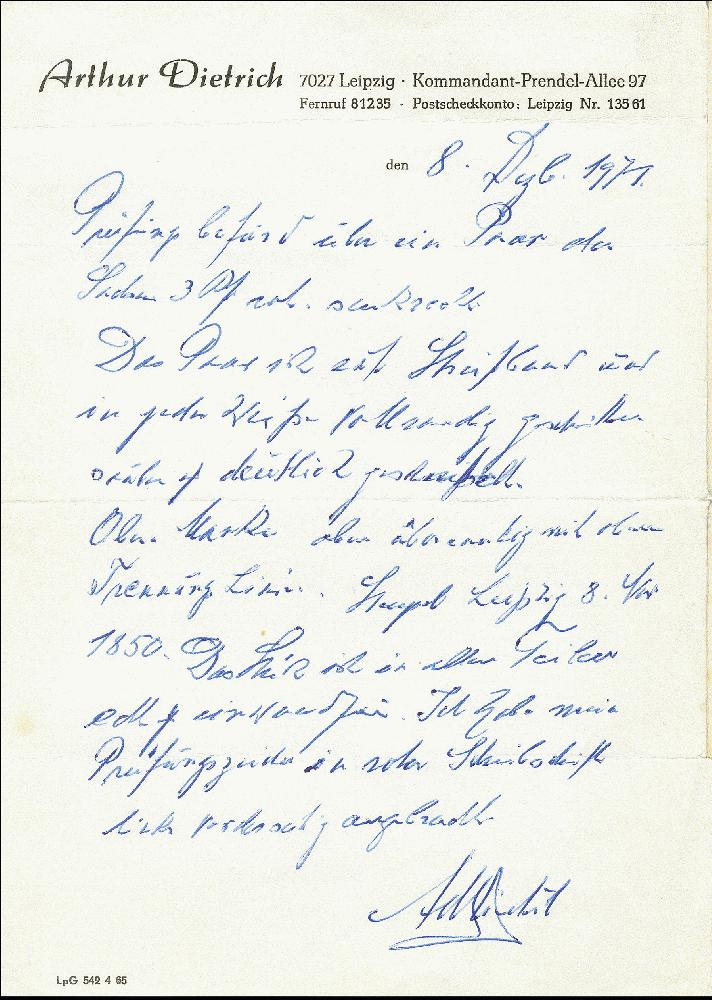 Arthur Dietrich 7027 Leipzig · Kommandant-Prendel-Allee 97
Fernruf 81235 · Postscheckkonto: Leipzig Nr. 13561
den 8. Dzb. 1971.
Prüfung befund über ein Paar der
Sachsen 3 Pf rot. senkrecht
Das Paar ist auf Streifband und
in jeder Weise vollrandig geschnitten
sauber & deutlich gestempelt.
Obere Marke oben überrandig mit oberer
Trennungs Linie. Stempel Leipzig 8. Nov
1850. Das Stück ist in allen Teilen
echt & einwandfrei. Ich habe mein
Prüfungszeichen in roter Schreibschrift
links vorderseitig angebracht
ADietrich
LpG 542 4 65